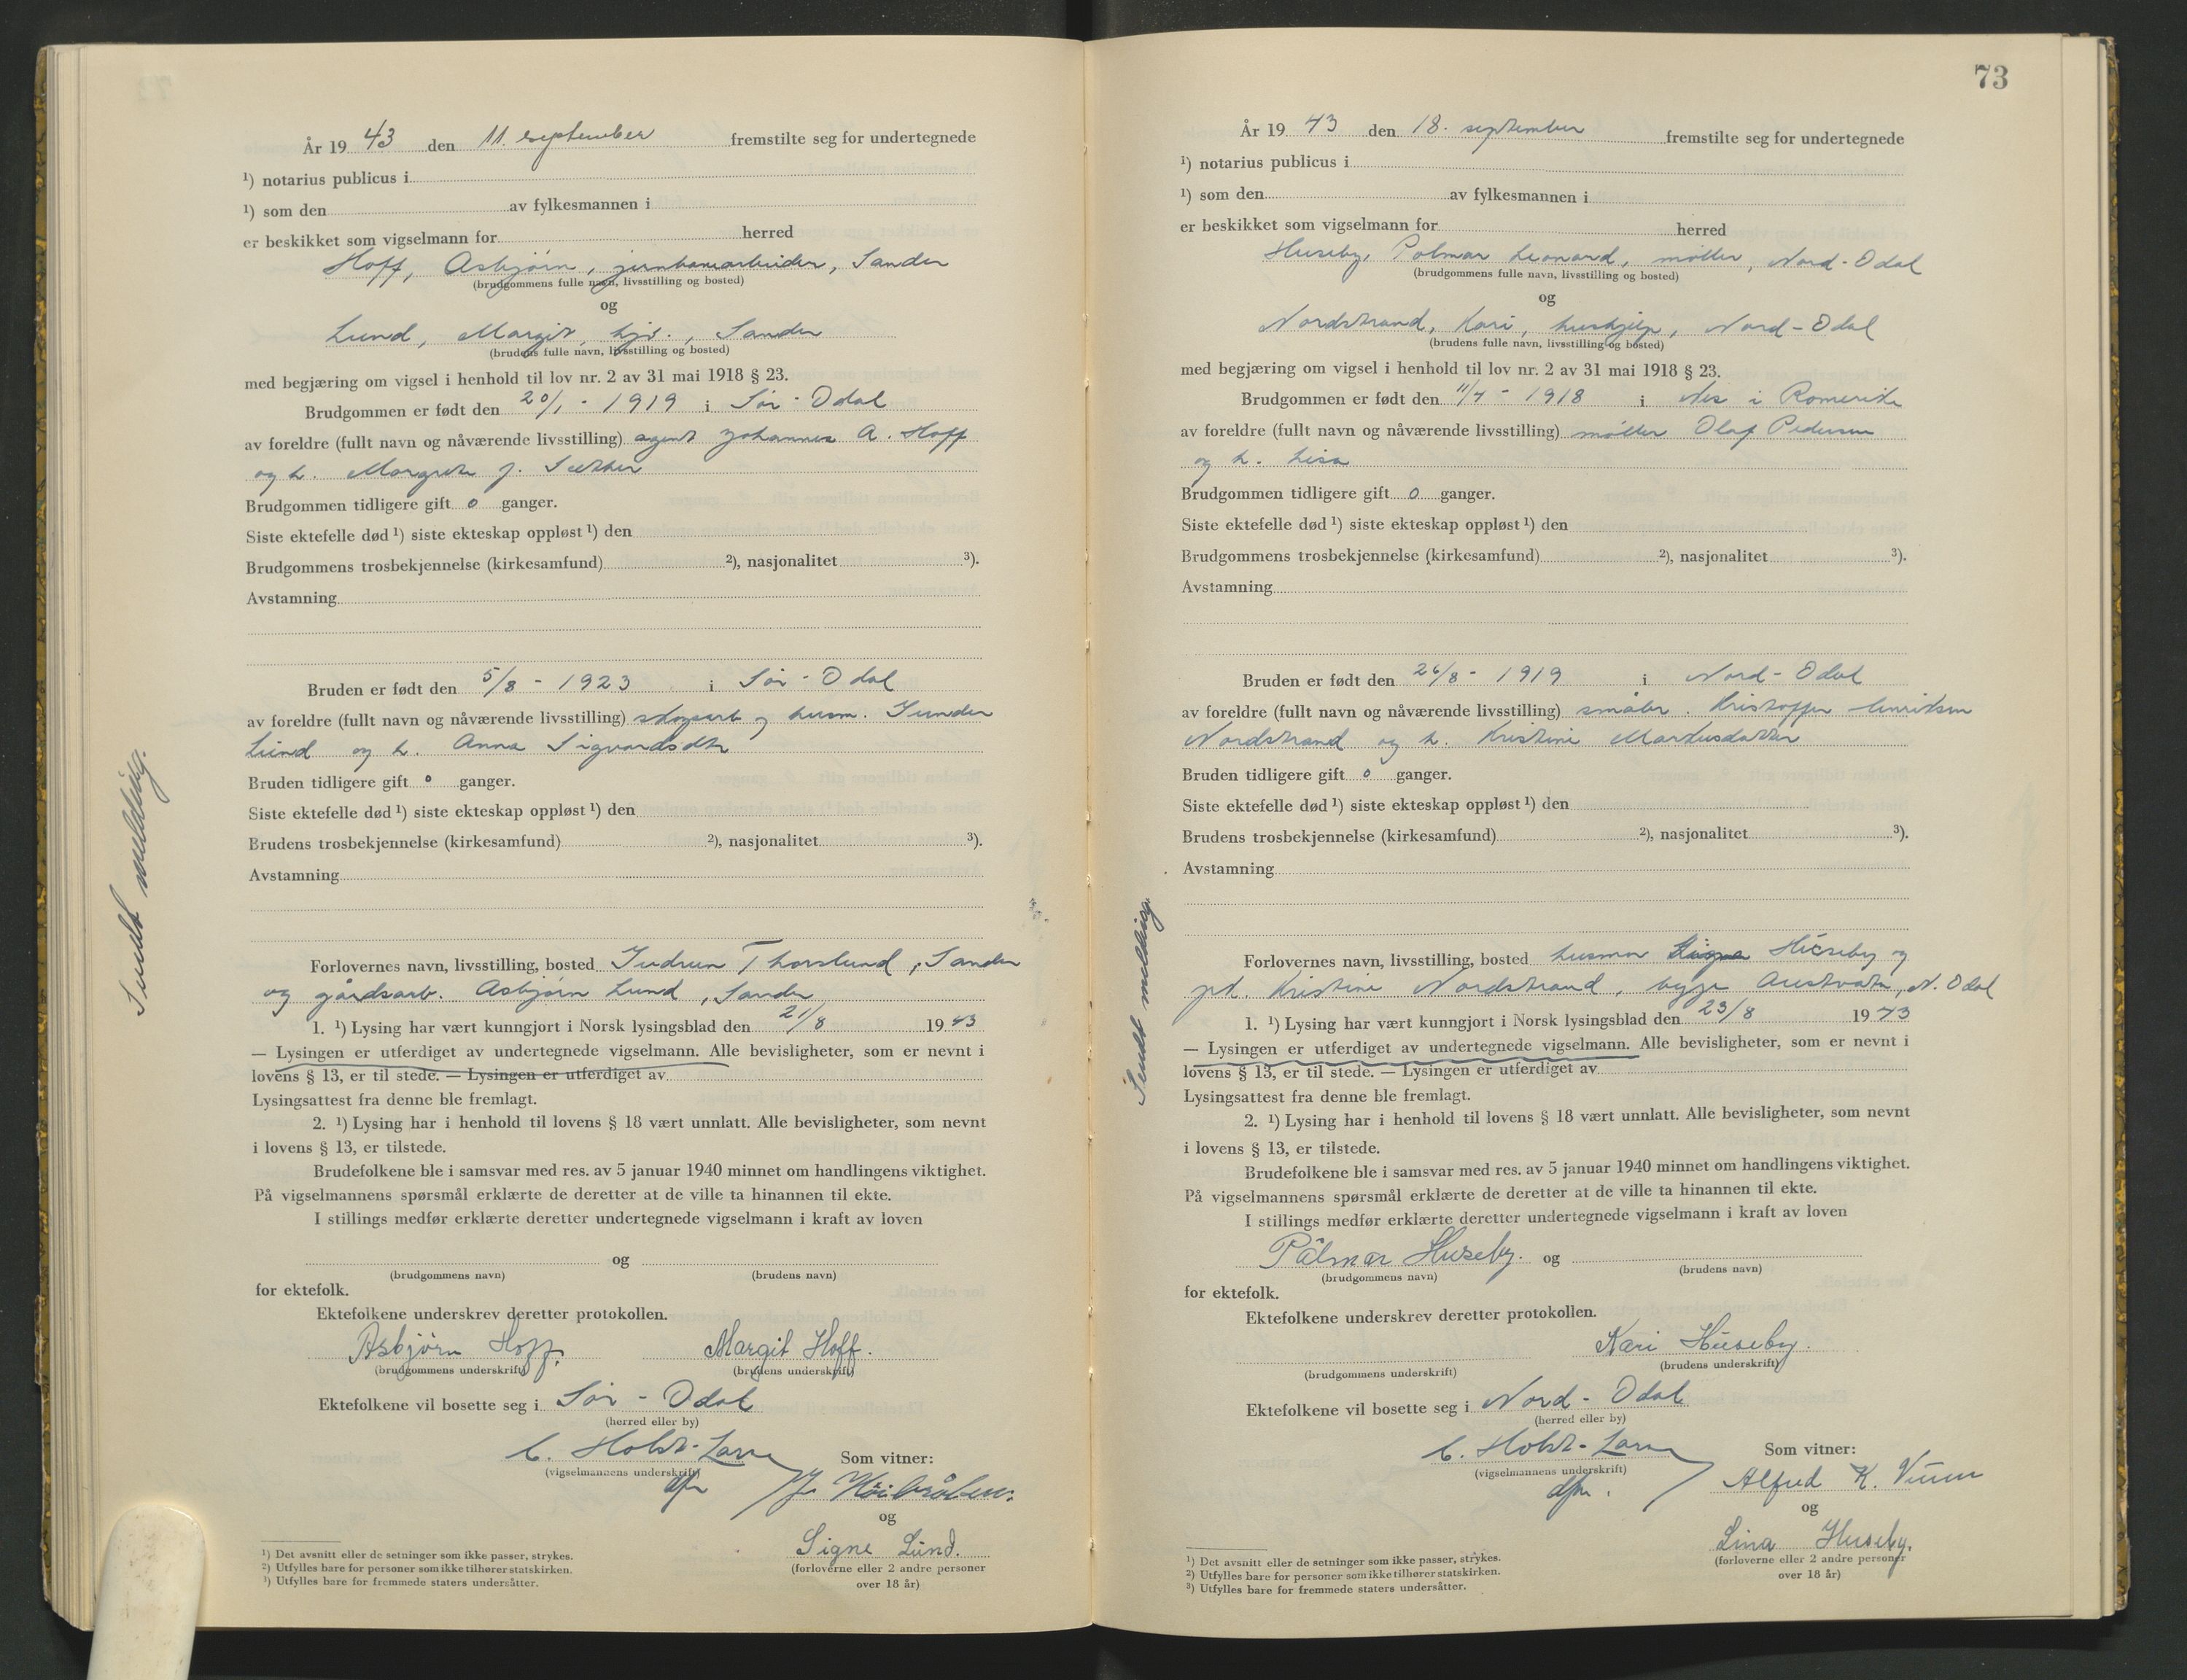 År 19 43 den 11. september fremstilte seg for undertegnede
¹) notarius publicus i
¹) som den av fylkesmannen i
er beskikket som vigselmann for herred
Hoff, Asbjørn, jernbanearbeider, Sander
(brudgommens fulle navn, livsstilling og bosted)
og
Lund, Margit, hjv., Sander
(brudens fulle navn, livsstilling og bosted)
med begjæring om vigsel i henhold til lov nr. 2 av 31 mai 1918 § 23.
Brudgommen er født den 20/1 - 1919 i Sør-Odal
av foreldre (fullt navn og nåværende livsstilling) agent Johannes A. Hoff
og h. Margrete J. Sæther
Brudgommen tidligere gift 0 ganger.
Siste ektefelle død ¹) siste ekteskap oppløst ¹) den
Brudgommens trosbekjennelse (kirkesamfund) ²), nasjonalitet ³).
Avstamning
Bruden er født den 5/8 - 1923 i Sør-Odal
av foreldre (fullt navn og nåværende livsstilling) skogsarb og husm. Gunder
Lund og h. Anna Sigvardsdtr
Bruden tidligere gift 0 ganger.
Siste ektefelle død ¹) siste ekteskap oppløst ¹) den
Brudens trosbekjennelse (kirkesamfund) ²), nasjonalitet ³).
Avstamning
Forlovernes navn, livsstilling, bosted Gudrun Thorslund, Sander
og gårdsarb. Asbjørn Lund, Sander
1. ¹) Lysing har vært kunngjort i Norsk lysingsblad den 21/8 19 43
— Lysingen er utferdiget av undertegnede vigselmann. Alle bevisligheter, som er nevnt i
lovens § 13, er til stede. — Lysingen er utferdiget av
Lysingsattest fra denne ble fremlagt.
2. ¹) Lysing har i henhold til lovens § 18 vært unnlatt. Alle bevisligheter, som nevnt
i lovens § 13, er tilstede.
Brudefolkene ble i samsvar med res. av 5 januar 1940 minnet om handlingens viktighet.
På vigselmannens spørsmål erklærte de deretter at de ville ta hinannen til ekte.
I stillings medfør erklærte deretter undertegnede vigselmann i kraft av loven
og
(brudgommens navn) (brudens navn)
for ektefolk.
Ektefolkene underskrev deretter protokollen.
Asbjørn Hoff. Margit Hoff.
(brudgommens underskrift) (brudens underskrift)
Ektefolkene vil bosette seg i Sør-Odal
(herred eller by)
C. Holst-Larsen Som vitner:
(vigselmannens underskrift)
dfm J.
og
Signe Lund.
(forloverne eller 2 andre personer
over 18 år)
¹) Det avsnitt eller de setninger som ikke passer, strykes.
²) Utfylles bare for personer som ikke tilhører statskirken.
³) Utfylles bare for fremmede staters undersåtter.
Sendt melding.
73
År 19 43 den 18. september fremstilte seg for undertegnede
¹) notarius publicus i
¹) som den av fylkesmannen i
er beskikket som vigselmann for herred
Huseby, Palmar Leonard, møller, Nord-Odal
(brudgommens fulle navn, livsstilling og bosted)
og
Nordstrand, Kari, hushjelp, Nord-Odal
(brudens fulle navn, livsstilling og bosted)
med begjæring om vigsel i henhold til lov nr. 2 av 31 mai 1918 § 23.
Brudgommen er født den 11/4 - 1918 i Nes i Romerike
av foreldre (fullt navn og nåværende livsstilling) møller Olaf Pedersen
og h. Lisa
Brudgommen tidligere gift 0 ganger.
Siste ektefelle død ¹) siste ekteskap oppløst ¹) den
Brudgommens trosbekjennelse (kirkesamfund) ²), nasjonalitet ³).
Avstamning
Bruden er født den 26/8 - 1919 i Nord-Odal
av foreldre (fullt navn og nåværende livsstilling) småbr. Kristoffer Henriksen
Nordstrand og h. Kristine Martusdatter
Bruden tidligere gift 0 ganger.
Siste ektefelle død ¹) siste ekteskap oppløst ¹) den
Brudens trosbekjennelse (kirkesamfund) ²), nasjonalitet ³).
Avstamning
Forlovernes navn, livsstilling, bosted husmor Huseby og
Kristine Nordstrand, begge Austvatn, N. Odal
1. ¹) Lysing har vært kunngjort i Norsk lysingsblad den 23/8 19 43
— Lysingen er utferdiget av undertegnede vigselmann. Alle bevisligheter, som er nevnt i
lovens § 13, er til stede. — Lysingen er utferdiget av
Lysingsattest fra denne ble fremlagt.
2. ¹) Lysing har i henhold til lovens § 18 vært unnlatt. Alle bevisligheter, som nevnt
i lovens § 13, er tilstede.
Brudefolkene ble i samsvar med res. av 5 januar 1940 minnet om handlingens viktighet.
På vigselmannens spørsmål erklærte de deretter at de ville ta hinannen til ekte.
I stillings medfør erklærte deretter undertegnede vigselmann i kraft av loven
Pålmar Huseby. og
(brudgommens navn) (brudens navn)
for ektefolk.
Ektefolkene underskrev deretter protokollen.
Kari Huseby.
(brudgommens underskrift) (brudens underskrift)
Ektefolkene vil bosette seg i Nord-Odal
(herred eller by)
C. Holst-Larsen Som vitner:
(vigselmannens underskrift)
dfm. Alfred K.
og
Lina Huseby.
(forloverne eller 2 andre personer
over 18 år)
¹) Det avsnitt eller de setninger som ikke passer, strykes.
²) Utfylles bare for personer som ikke tilhører statskirken.
³) Utfylles bare for fremmede staters undersåtter.
Sendt melding.